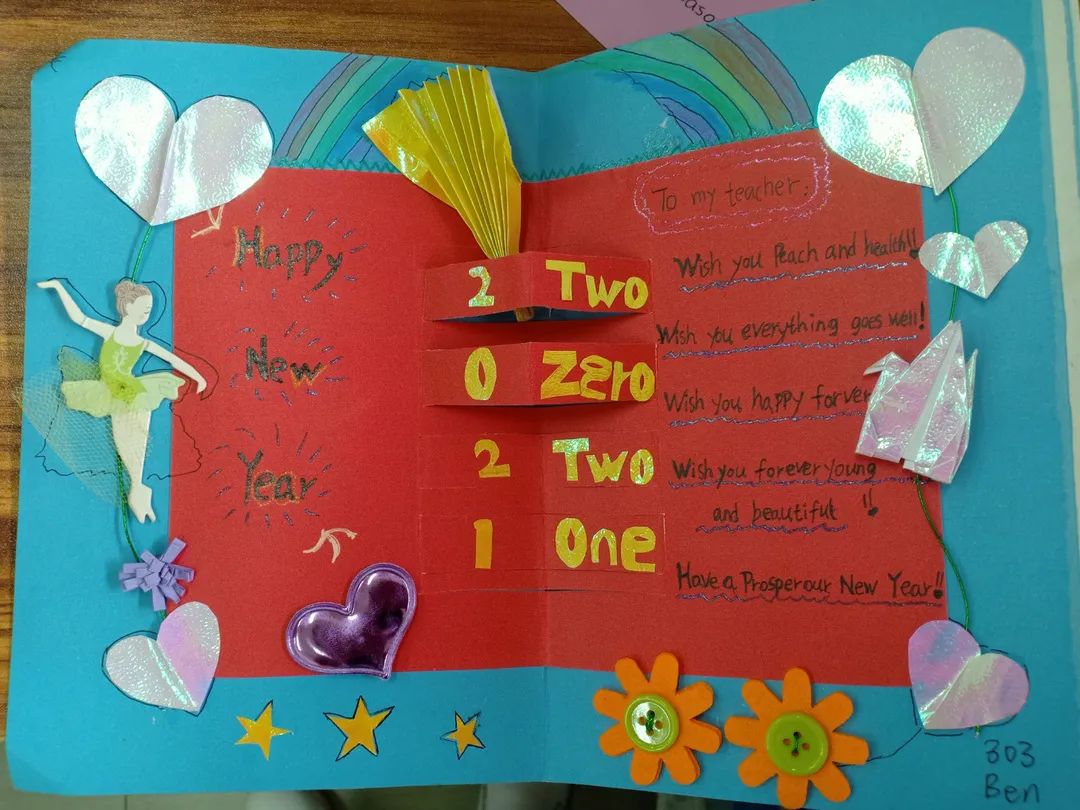 Happy
New
Year
2 Two
0 Zero
2 Two
1 One
To my teacher:
Wish you Peach and health!!
Wish you everything goes well!
Wish you happy forver
Wish you forever young
and beautiful !!
Have a Prosperour New Year!!
303
Ben